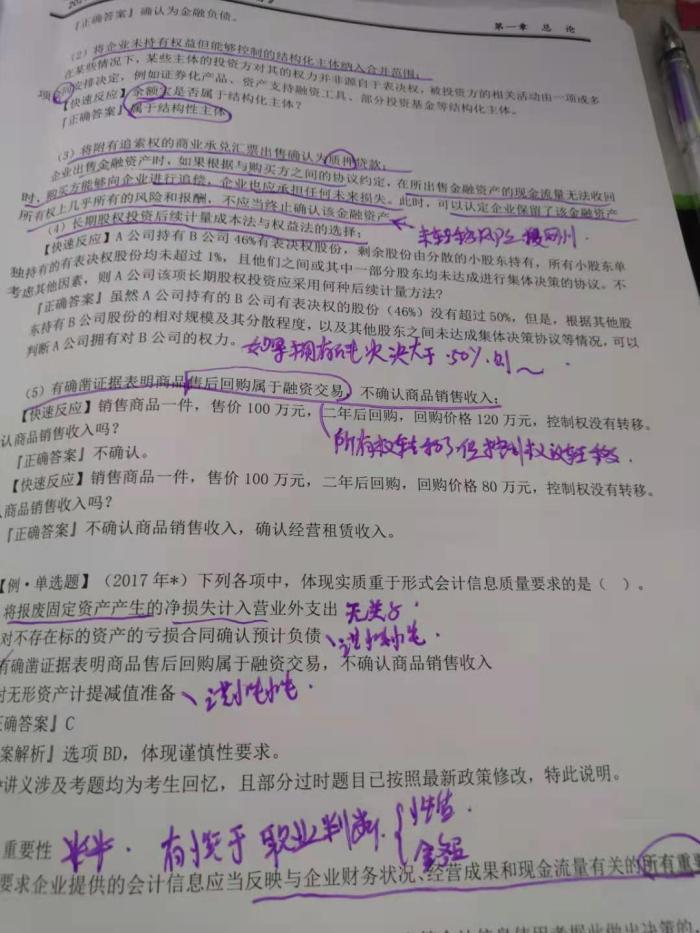 第一章 总 论
『正确答案』确认为金融负债。
（2）将企业未持有权益但能够控制的结构化主体纳入合并范围；
在某些情况下，某些主体的投资方对其的权力并非源自于表决权，被投资方的相关活动由一项或多
项合同安排决定，例如证券化产品、资产支持融资工具、部分投资基金等结构化主体。
【快速反应】余额宝是否属于结构化主体？
『正确答案』属于结构性主体
（3）将附有追索权的商业承兑汇票出售确认为质押贷款；
企业出售金融资产时，如果根据与购买方之间的协议约定，在所出售金融资产的现金流量无法收回
时，购买方能够向企业进行追偿，企业也应承担任何未来损失。此时，可以认定企业保留了该金融资产
所有权上几乎所有的风险和报酬，不应当终止确认该金融资产
（4）长期股权投资后续计量成本法与权益法的选择；
【快速反应】A 公司持有 B 公司 46%有表决权股份，剩余股份由分散的小股东持有，所有小股东单
独持有的有表决权股份均未超过 1%，且他们之间或其中一部分股东均未达成进行集体决策的协议。不
考虑其他因素，则 A 公司该项长期股权投资应采用何种后续计量方法？
『正确答案』虽然 A 公司持有的 B 公司有表决权的股份（46%）没有超过 50%，但是，根据其他股
东持有 B 公司股份的相对规模及其分散程度，以及其他股东之间未达成集体决策协议等情况，可以
判断 A 公司拥有对 B 公司的权力。
大于 50% 则～
（5）有确凿证据表明商品售后回购属于融资交易，不确认商品销售收入；
【快速反应】销售商品一件，售价 100 万元，二年后回购，回购价格 120 万元，控制权没有转移。
认商品销售收入吗？
所有权转移了但控制权没转移．
『正确答案』不确认。
【快速反应】销售商品一件，售价 100 万元，二年后回购，回购价格 80 万元，控制权没有转移。
商品销售收入吗？
『正确答案』不确认商品销售收入，确认经营租赁收入。
【例·单选题】（2017 年*）下列各项中，体现实质重于形式会计信息质量要求的是（ ）。
将报废固定资产产生的净损失计入营业外支出 无关
对不存在标的资产的亏损合同确认预计负债 谨慎性．
有确凿证据表明商品售后回购属于融资交易，不确认商品销售收入
对无形资产计提减值准备 谨慎性．
正确答案』C
案解析』选项 BD，体现谨慎性要求。
*讲义涉及考题均为考生回忆，且部分过时题目已按照最新政策修改，特此说明。
重要性
职业判断
性质
金额
要求企业提供的会计信息应当反映与企业财务状况、经营成果和现金流量有关的所有重要